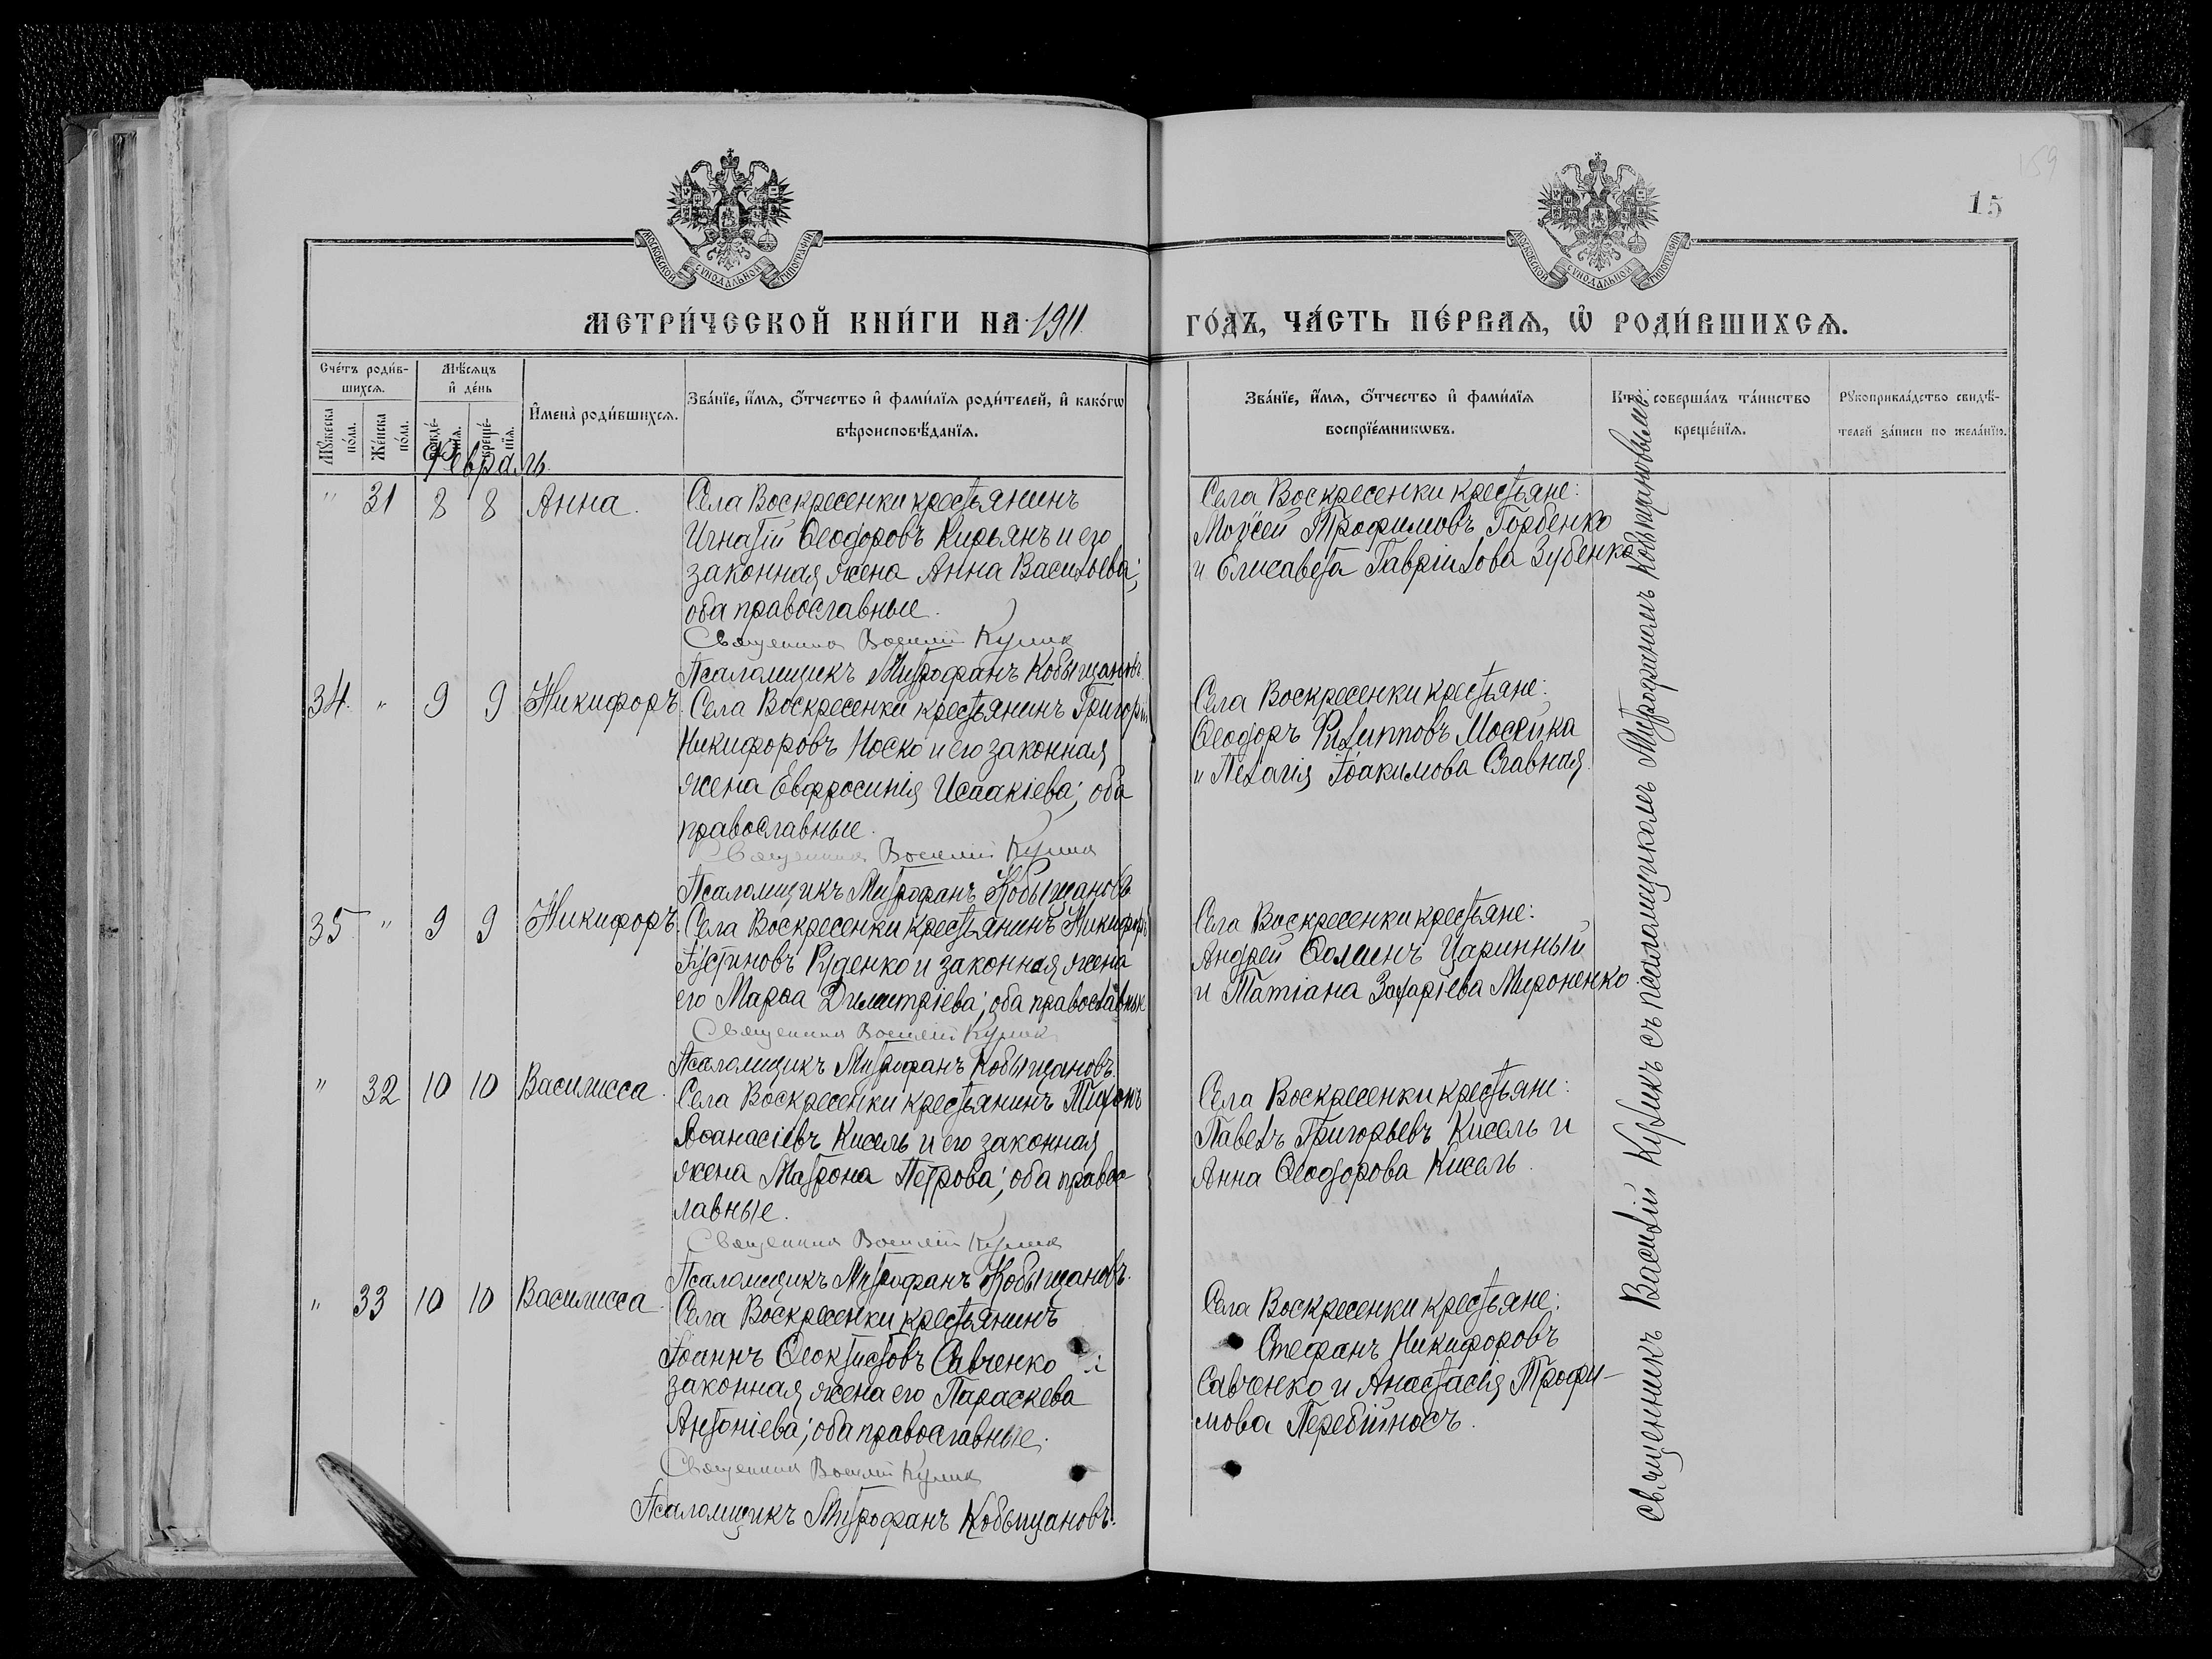 59
15
МОСКОВСКОЙ СѴНОДАЛЬНОЙ ТИПОГРАФІИ
МОСКОВСКОЙ СѴНОДАЛЬНОЙ ТИПОГРАФІИ
МЕТРИ́ЧЕСКОЙ КНИ́ГИ НА 1911
ГО́ДЪ, ЧА́СТЬ ПЕ́РВАѦ, Ѡ҆ РОДИ́ВШИХСѦ.
Сче́тъ роди́в-
шихсѧ.
Мꙋ́жеска по́ла.
Же́нска по́ла.
Мѣ́сѧцъ
и҆ де́нь
рожде́-
нїѧ.
креще́-
нїѧ.
И҆мена̀ роди́вшихсѧ.
Зва́нїе, и҆́мѧ, ѻ҆́тчество и҆ фами́лїѧ роди́телей, и҆ како́гѡ
вѣроисповѣ́данїѧ.
Зва́нїе, и҆́мѧ, ѻ҆́тчество и҆ фами́лїѧ
воспрїе́мникѡвъ.
Кто̀ соверша́лъ та́инство
креще́нїѧ.
Рꙋкоприкла́дство свидѣ́-
телей за́писи по жела́нїю.
Февраль
" 31 8 8 Анна.
Села Воскресенки крестьянинъ
Игнатій Ѳеодоровъ Кирьянъ и его
законная жена Анна Васильева;
оба православные.
Священникъ Василій Куликъ
Псаломщикъ Митрофанъ Кобыщановъ.
Села Воскресенки крестьяне:
Моѵсей Трофимовъ Горбенко
и Елисавета Гавріилова Зубенко
34. " 9 9 Никифоръ.
Села Воскресенки крестьянинъ Григорій
Никифоровъ Носко и его законная
жена Евфросинія Исаакіева; оба
православные.
Священникъ Василій Куликъ
Псаломщикъ Митрофанъ Кобыщановъ
Села Воскресенки крестьяне:
Ѳеодоръ Филипповъ Мосейка
и Пелагія Іоакимова Славная.
35 " 9 9 Никифоръ.
Села Воскресенки крестьянинъ Никифоръ
Іустиновъ Руденко и законная жена
его Марѳа Димитріева; оба православные
Священникъ Василій Куликъ
Псаломщикъ Митрофанъ Кобыщановъ.
Села Воскресенки крестьяне:
Андрей Ѳоминъ Царинный
и Татіана Захаріева Мироненко
" 32 10 10 Василисса.
Села Воскресенки крестьянинъ Тихонъ
Аѳанасіевъ Кисель и его законная
жена Матрона Петрова; оба правос-
лавные.
Священникъ Василій Куликъ
Псаломщикъ Митрофанъ Кобыщановъ.
Села Воскресенки крестьяне:
Павелъ Григорьевъ Кисель и
Анна Ѳеодорова Кисель.
" 33 10 10 Василисса.
Села Воскресенки крестьянинъ
Іоаннъ Ѳеоктистовъ Савченко и
законная жена его Параскева
Антоніева; оба православные.
Священникъ Василій Куликъ
Псаломщикъ Митрофанъ Кобыщановъ.
Села Воскресенки крестьяне:
Стефанъ Никифоровъ
Савченко и Анастасія Трофи-
мова Перебійносъ.
Священникъ Василій Куликъ съ псаломщикомъ Митрофаномъ Кобыщановымъ.